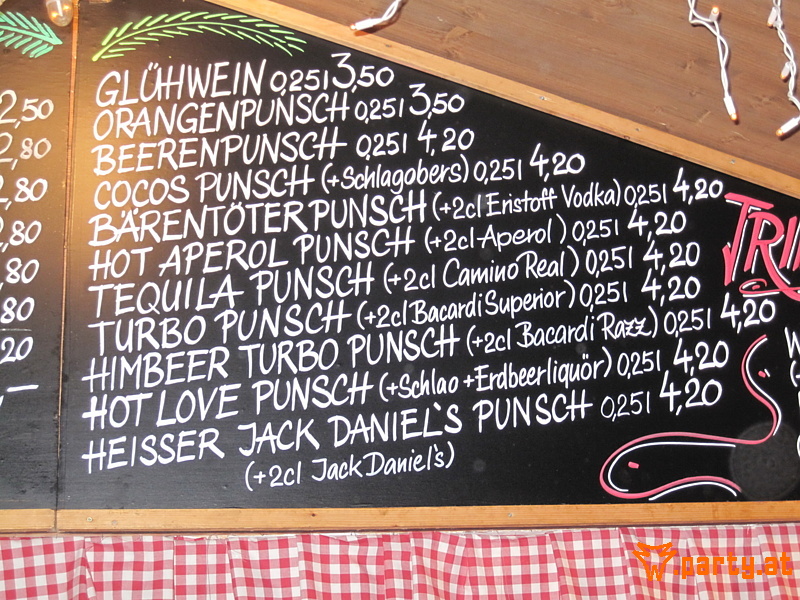 2,50
2,80
2,80
2,80
,80
,80
,20
GLÜHWEIN 0,25l 3,50
ORANGENPUNSCH 0,25l 3,50
BEERENPUNSCH 0,25l 4,20
COCOS PUNSCH (+Schlagobers) 0,25l 4,20
BÄRENTÖTER PUNSCH (+2cl Eristoff Vodka) 0,25l 4,20
HOT APEROL PUNSCH (+2cl Aperol) 0,25l 4,20
TEQUILA PUNSCH (+2cl Camino Real) 0,25l 4,20
TURBO PUNSCH (+2cl Bacardi Superior) 0,25l 4,20
HIMBEER TURBO PUNSCH (+2cl Bacardi Razz) 0,25l 4,20
HOT LOVE PUNSCH (+Schlao+Erdbeerliquör) 0,25l 4,20
HEISSER JACK DANIEL`S PUNSCH 0,25l 4,20
(+2cl Jack Daniel's)
TRI
party.at